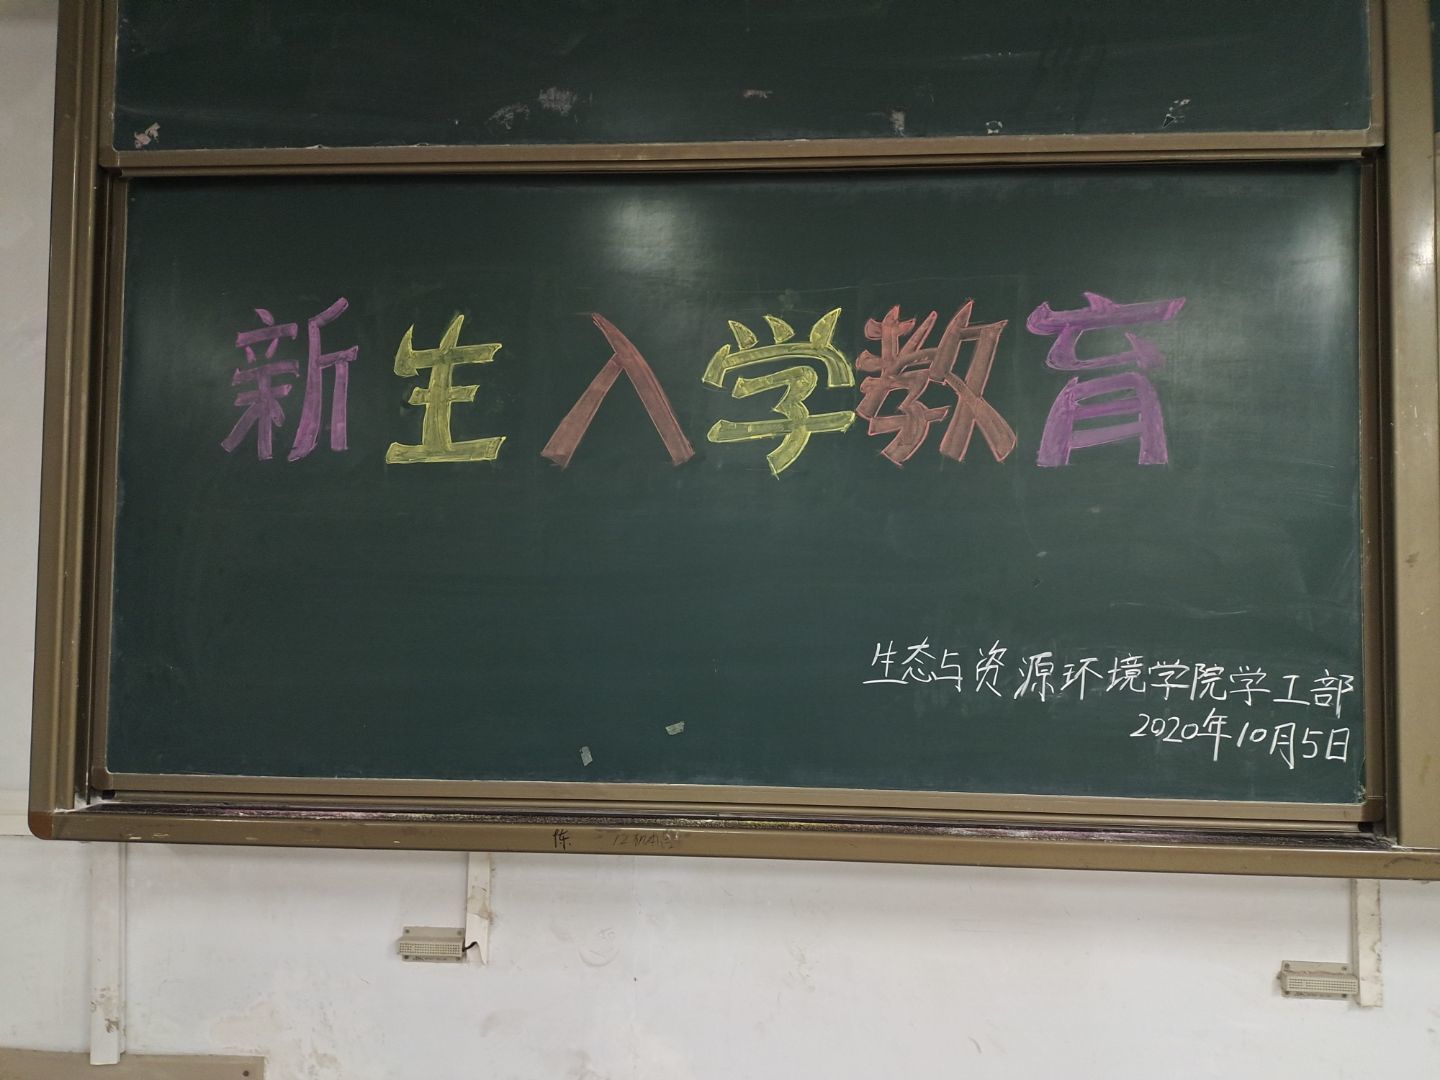 新生入学教育
生态与资源环境学院学工部
2020年10月5日
陈